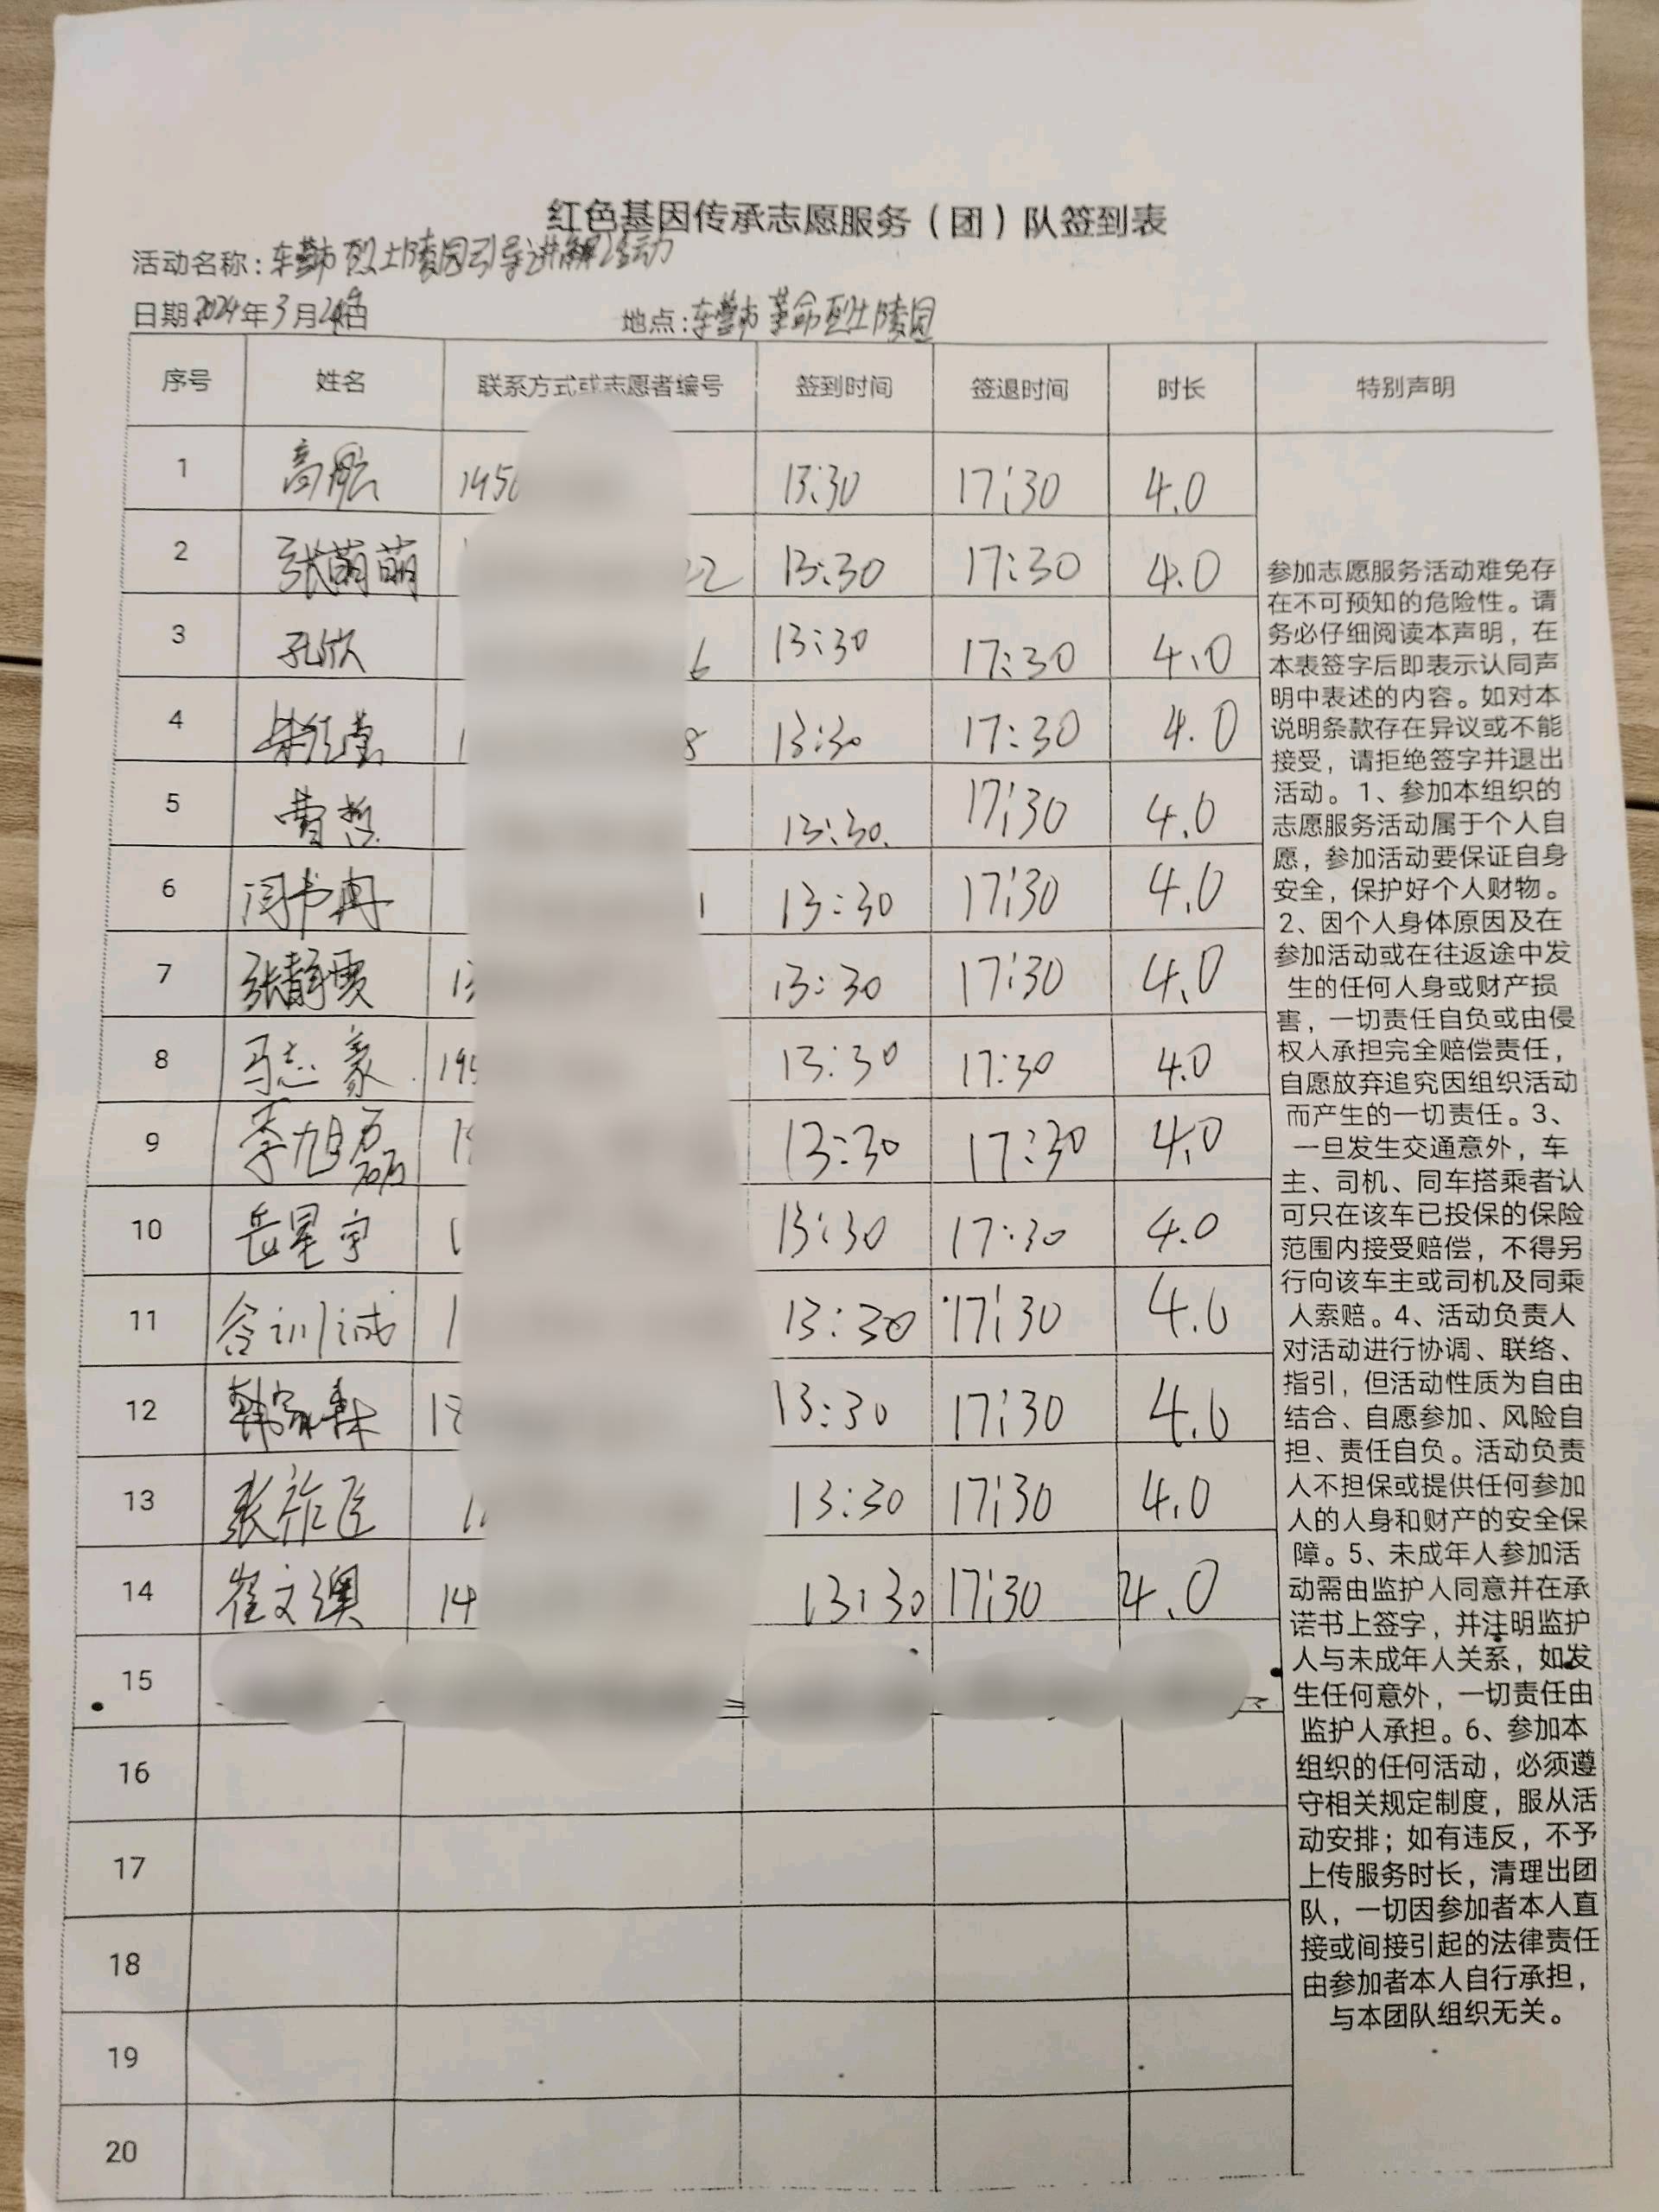 红色基因传承志愿服务（团）队签到表
活动名称：东营市烈士陵园引导讲解活动
日期2024年3月日 地点：东营市革命烈士陵园
序号 姓名 联系方式或志愿者编号 签到时间 签退时间 时长 特别声明
1 高 13:30 17:30 4.0
2 张萌萌 13:30 17:30 4.0
3 孔欣 13:30 17:30 4.0
4 13:30 17:30 4.0
5 曹哲 13:30. 17:30 4.0
6 闫书冉 13:30 17:30 4.0
7 张静雯 13:30 17:30 4.0
8 马志豪 13:30 17:30 4.0
9 李旭磊 13:30 17:30 4.0
10 岳星宇 13:30 17:30 4.0
11 训诚 13:30 17:30 4.0
12 韩 13:30 17:30 4.0
13 张祚臣 13:30 17:30 4.0
14 崔文澳 14 13:30 17:30 4.0
15
16
17
18
19
20
参加志愿服务活动难免存
在不可预知的危险性。请
务必仔细阅读本声明，在
本表签字后即表示认同声
明中表述的内容。如对本
说明条款存在异议或不能
接受，请拒绝签字并退出
活动。1、参加本组织的
志愿服务活动属于个人自
愿，参加活动要保证自身
安全，保护好个人财物。
2、因个人身体原因及在
参加活动或在往返途中发
生的任何人身或财产损
害，一切责任自负或由侵
权人承担完全赔偿责任，
自愿放弃追究因组织活动
而产生的一切责任。3、
一旦发生交通意外，车
主、司机、同车搭乘者认
可只在该车已投保的保险
范围内接受赔偿，不得另
行向该车主或司机及同乘
人索赔。4、活动负责人
对活动进行协调、联络、
指引，但活动性质为自由
结合、自愿参加、风险自
担、责任自负。活动负责
人不担保或提供任何参加
人的人身和财产的安全保
障。5、未成年人参加活
动需由监护人同意并在承
诺书上签字，并注明监护
人与未成年人关系，如发
生任何意外，一切责任由
监护人承担。6、参加本
组织的任何活动，必须遵
守相关规定制度，服从活
动安排；如有违反，不予
上传服务时长，清理出团
队，一切因参加者本人直
接或间接引起的法律责任
由参加者本人自行承担，
与本团队组织无关。